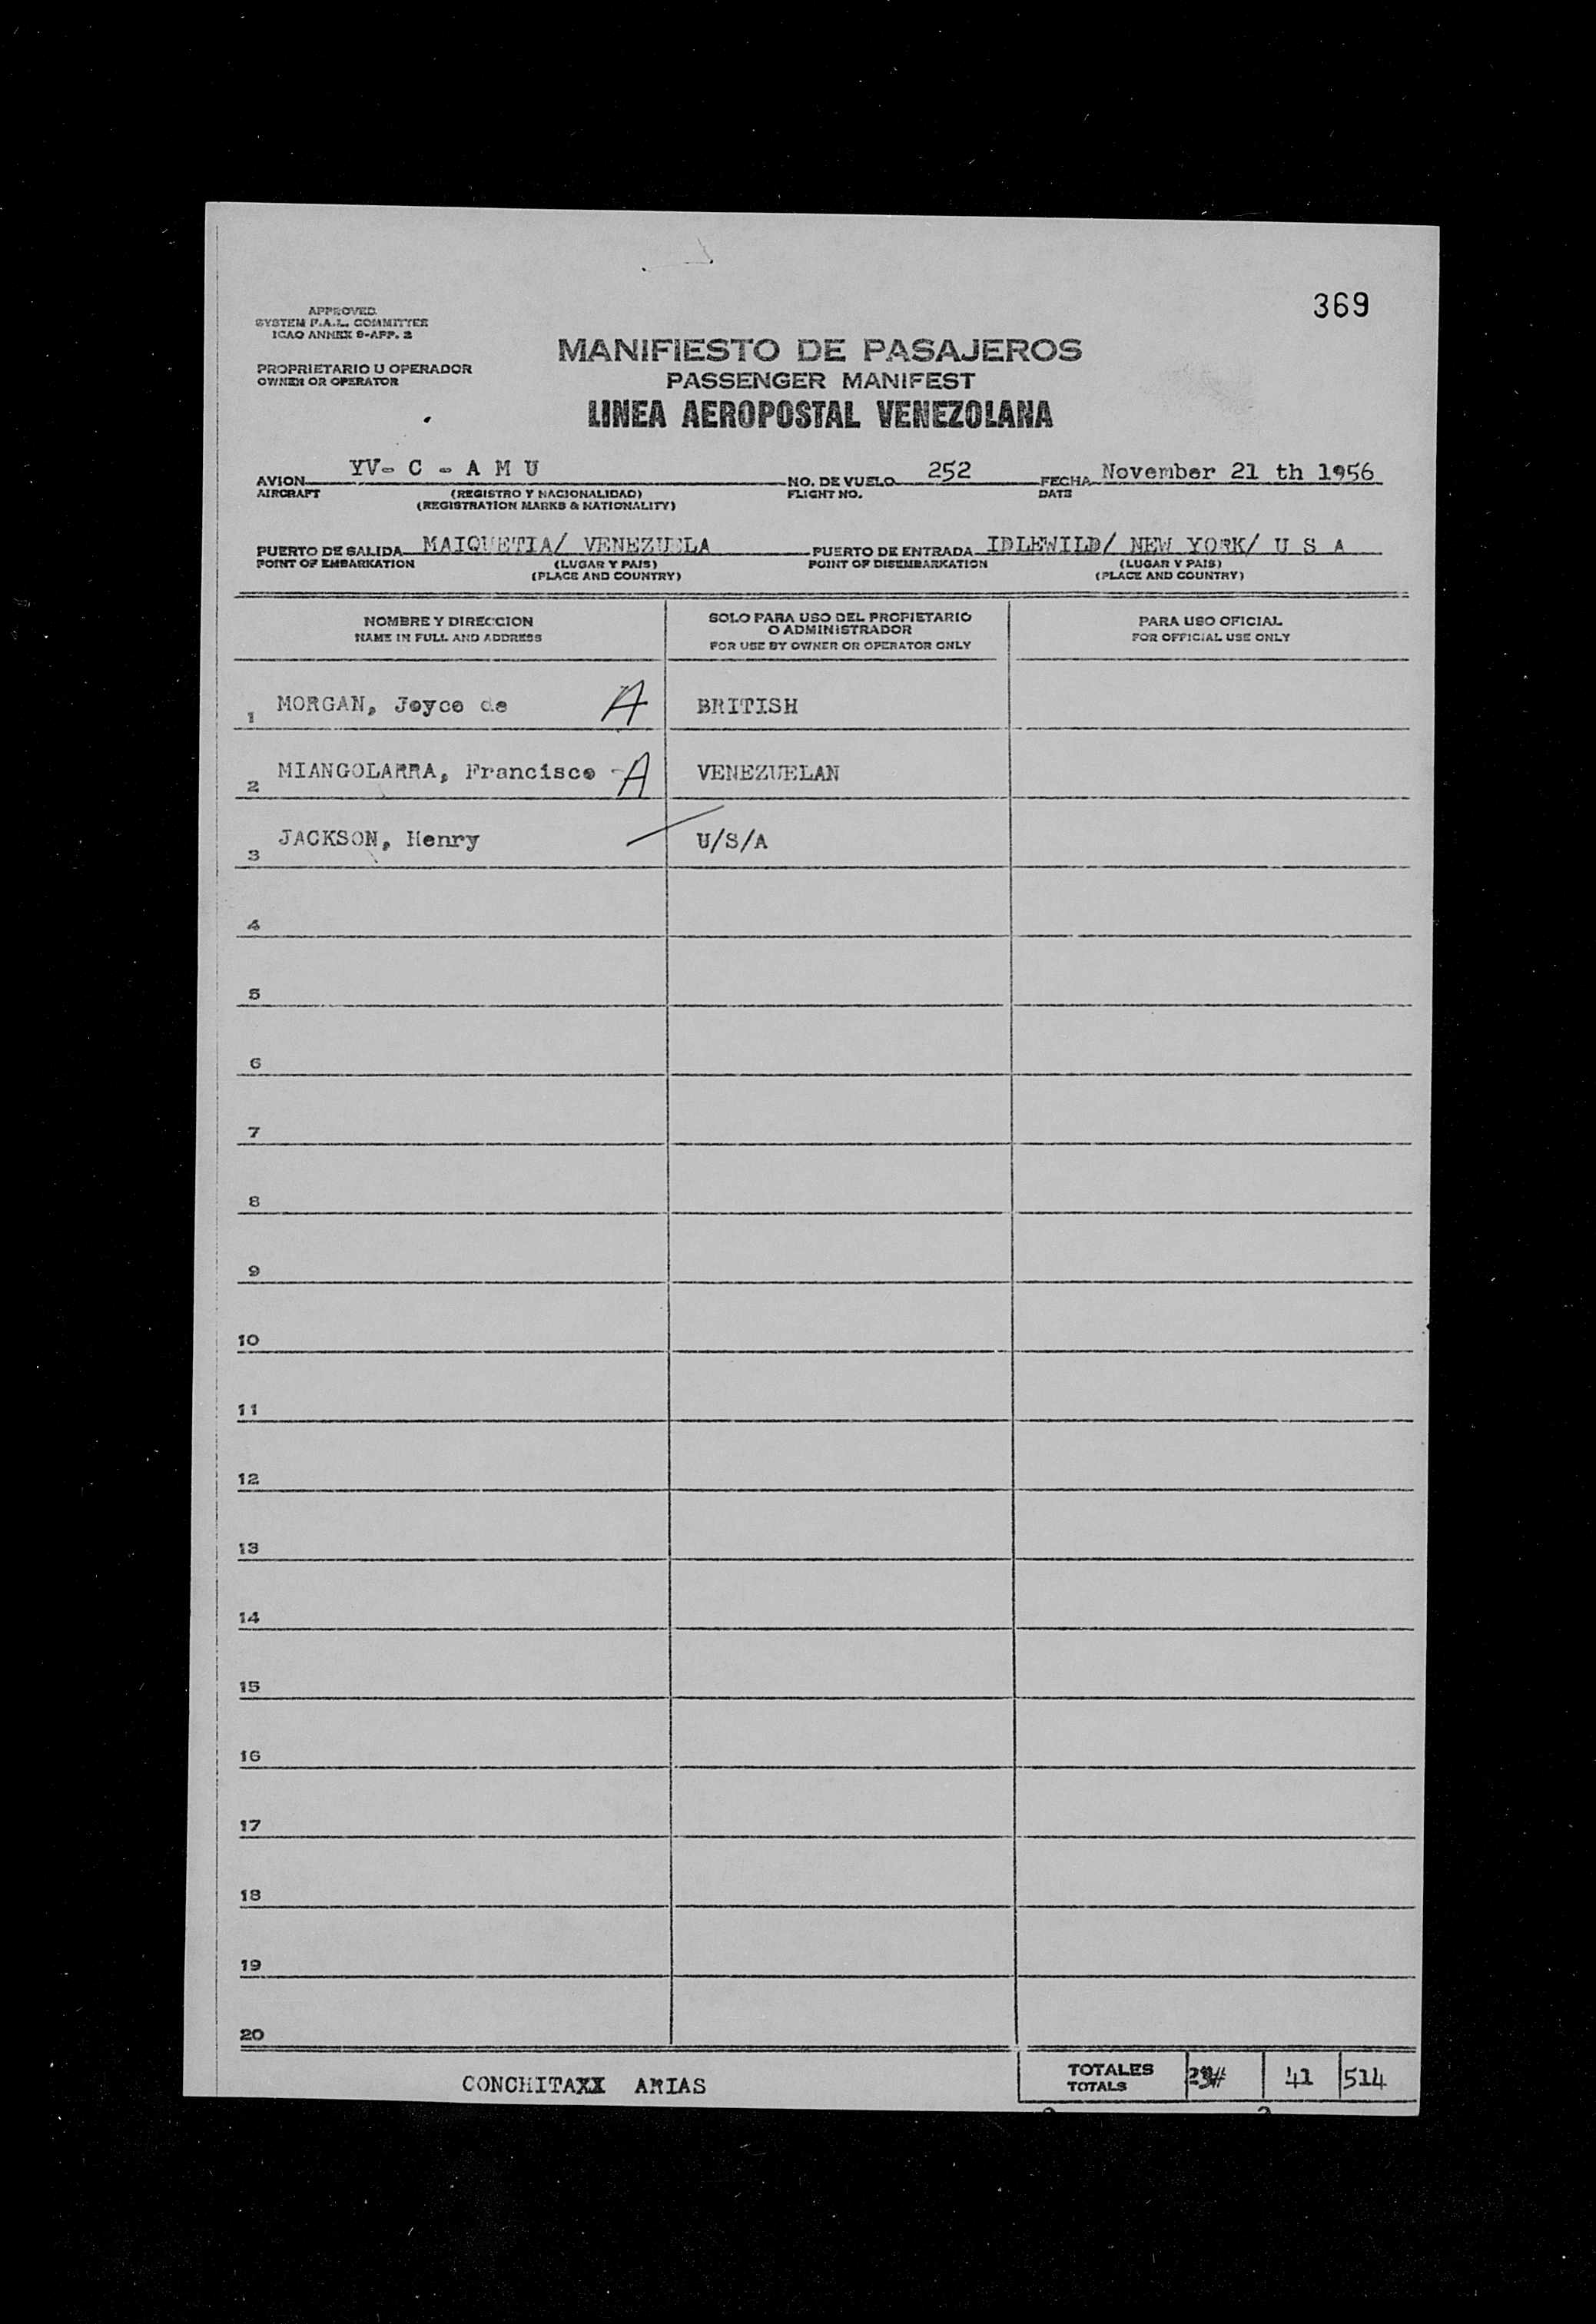 369
APPROVED.
SYSTEM F.A.L. COMMITTEE
ICAO ANNEX 9-APP. 2
PROPRIETARIO U OPERADOR
OWNER OR OPERATOR
MANIFIESTO DE PASAJEROS
PASSENGER MANIFEST
LINEA AEROPOSTAL VENEZOLANA
AVION YV- C - A M U NO. DE VUELO 252 FECHA November 21 th 1956
AIRCRAFT (REGISTRO Y NACIONALIDAD) FLIGHT NO. DATE
(REGISTRATION MARKS & NATIONALITY)
PUERTO DE SALIDA MAIQUETIA/ VENEZUELA PUERTO DE ENTRADA IDLEWILD/ NEW YORK/ U S A
POINT OF EMBARKATION (LUGAR Y PAIS) POINT OF DISEMBARKATION (LUGAR Y PAIS)
(PLACE AND COUNTRY) (PLACE AND COUNTRY)
NOMBRE Y DIRECCION SOLO PARA USO DEL PROPIETARIO PARA USO OFICIAL
O ADMINISTRADOR
NAME IN FULL AND ADDRESS FOR USE BY OWNER OR OPERATOR ONLY FOR OFFICIAL USE ONLY
1 MORGAN, Joyce de A BRITISH
2 MIANGOLARRA, Francisco A VENEZUELAN
3 JACKSON, Henry U/S/A
4
5
6
7
8
9
10
11
12
13
14
15
16
17
18
19
20
CONCHITAXX ARIAS TOTALES 41 514
TOTALS